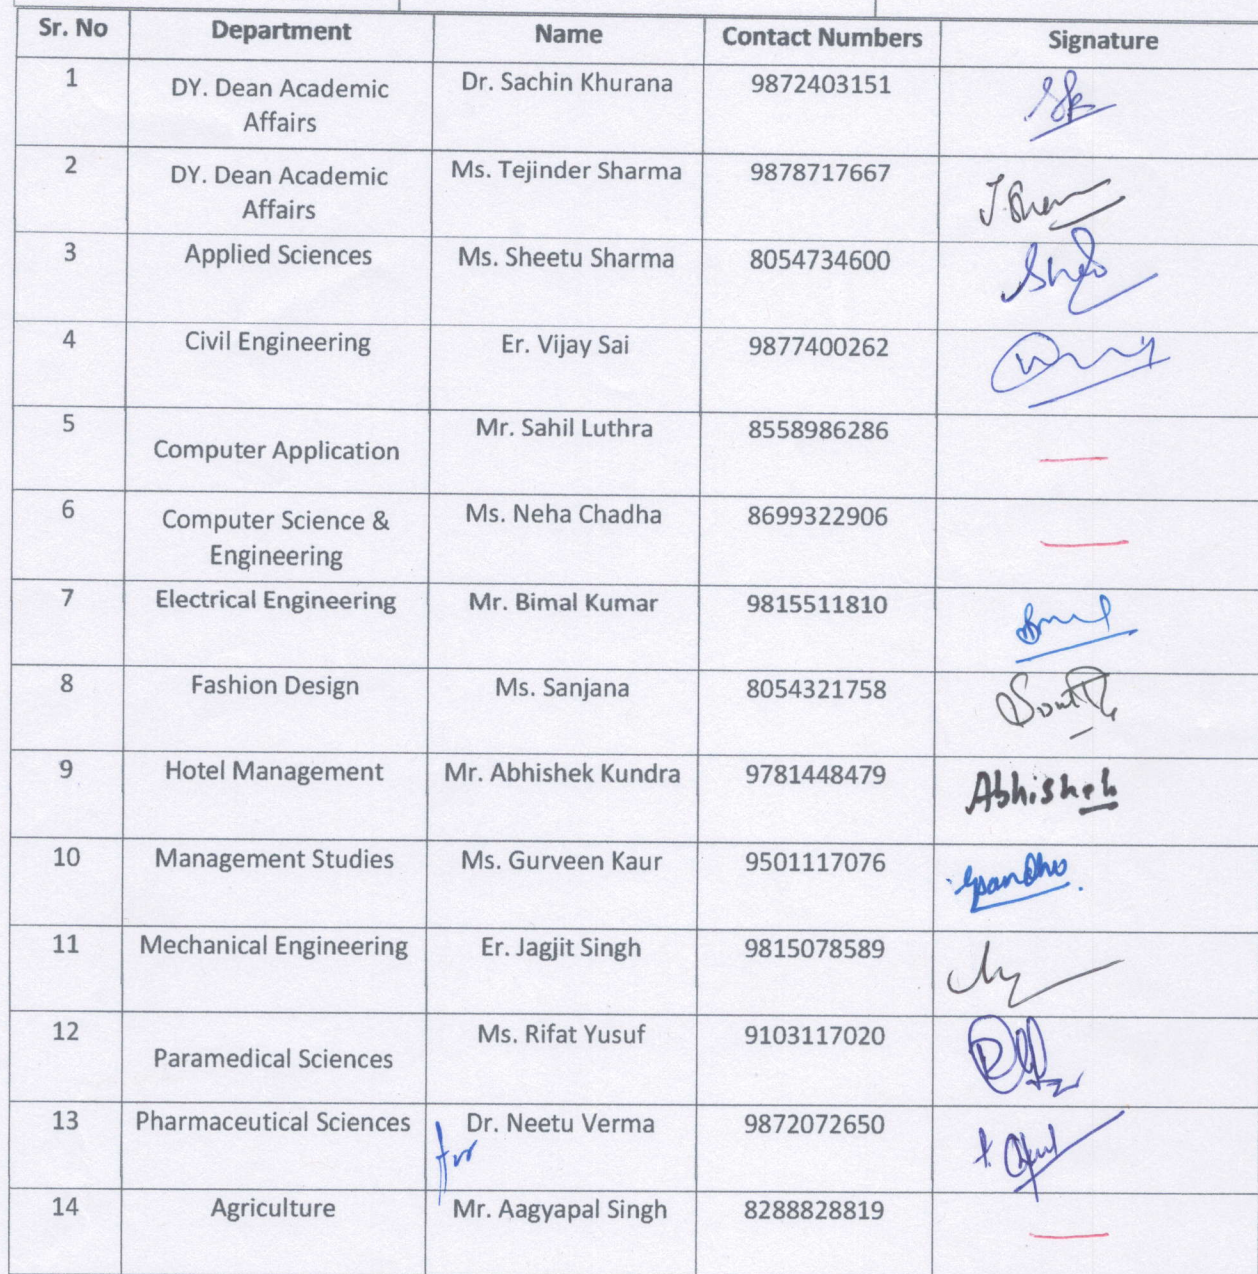 Sr. No Department Name Contact Numbers Signature
1 DY. Dean Academic Affairs Dr. Sachin Khurana 9872403151
2 DY. Dean Academic Affairs Ms. Tejinder Sharma 9878717667
3 Applied Sciences Ms. Sheetu Sharma 8054734600
4 Civil Engineering Er. Vijay Sai 9877400262
5 Computer Application Mr. Sahil Luthra 8558986286
6 Computer Science & Engineering Ms. Neha Chadha 8699322906
7 Electrical Engineering Mr. Bimal Kumar 9815511810
8 Fashion Design Ms. Sanjana 8054321758
9 Hotel Management Mr. Abhishek Kundra 9781448479 Abhishek
10 Management Studies Ms. Gurveen Kaur 9501117076
11 Mechanical Engineering Er. Jagjit Singh 9815078589
12 Paramedical Sciences Ms. Rifat Yusuf 9103117020
13 Pharmaceutical Sciences for Dr. Neetu Verma 9872072650
14 Agriculture Mr. Aagyapal Singh 8288828819